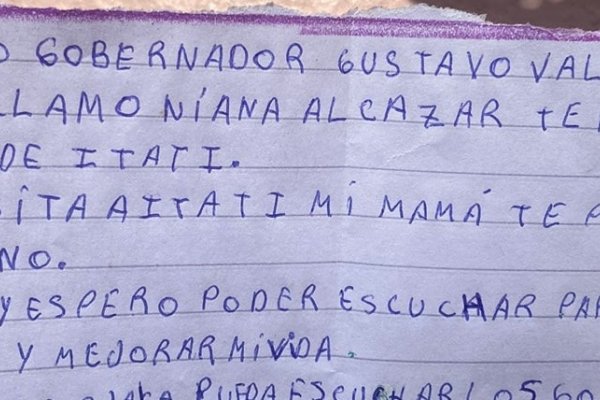 O GOBERNADOR GUSTAVO VAL
LLAMO NÍANA ALCAZAR TE
DE ITATI.
ITA A ITATI MI MAMÁ TE
NO.
Y ESPERO PODER ESCUCHAR PAR
Y MEJORAR MI VIDA.
PUEDA ESCUCHAR LOS GO